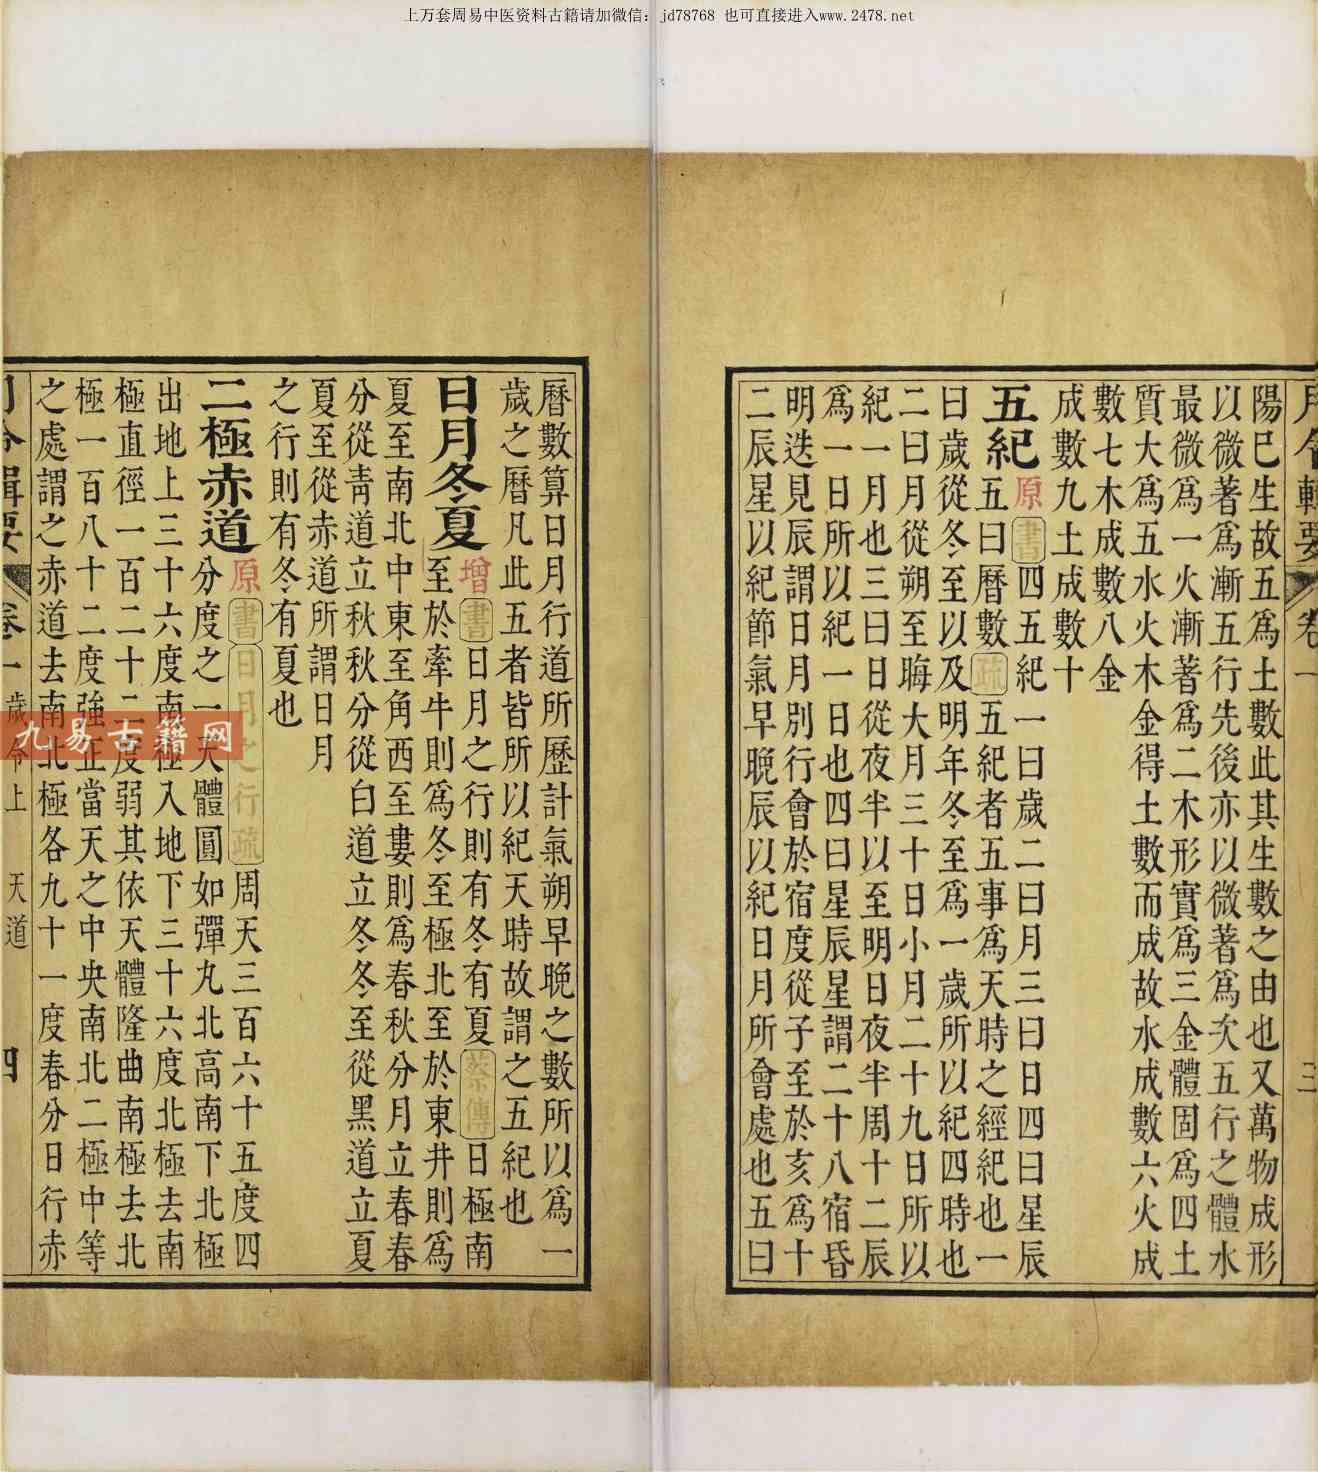 上万套周易中医资料古籍请加微信：jd78768 也可直接进入www.2478.net
月令輯要 卷一 三
陽已生故五爲土數此其生數之由也又萬物成形
以微著爲漸五行先後亦以微著爲次五行之體水
最微爲一火漸著爲二木形實爲三金體固爲四土
質大爲五水火木金得土數而成故水成數六火成
數七木成數八金
成數九土成數十
五紀原書四五紀一曰歲二曰月三曰日四曰星辰
五曰曆數疏五紀者五事爲天時之經紀也一
曰歲從冬至以及明年冬至爲一歲所以紀四時也
二曰月從朔至晦大月三十日小月二十九日所以
紀一月也三曰日從夜半以至明日夜半周十二辰
爲一日所以紀一日也四曰星辰星謂二十八宿昏
明迭見辰謂日月別行會於宿度從子至於亥爲十
二辰星以紀節氣早晚辰以紀日月所會處也五曰
曆數算日月行道所歷計氣朔早晚之數所以爲一
歲之曆凡此五者皆所以紀天時故謂之五紀也
日月冬夏增書日月之行則有冬有夏蔡傳日極南
至於牽牛則爲冬至極北至於東井則爲
夏至南北中東至角西至婁則爲春秋分月立春春
分從靑道立秋秋分從白道立冬冬至從黑道立夏
夏至從赤道所謂日月
之行則有冬有夏也
二極赤道原書日月之行疏周天三百六十五度四
分度之一天體圓如彈丸北高南下北極
出地上三十六度南極入地下三十六度北極去南
極直徑一百二十二度弱其依天體隆曲南極去北
極一百八十二度強正當天之中央南北二極中等
之處謂之赤道去南北極各九十一度春分日行赤
月令輯要 卷一 歲令上 天道 四
九易古籍网